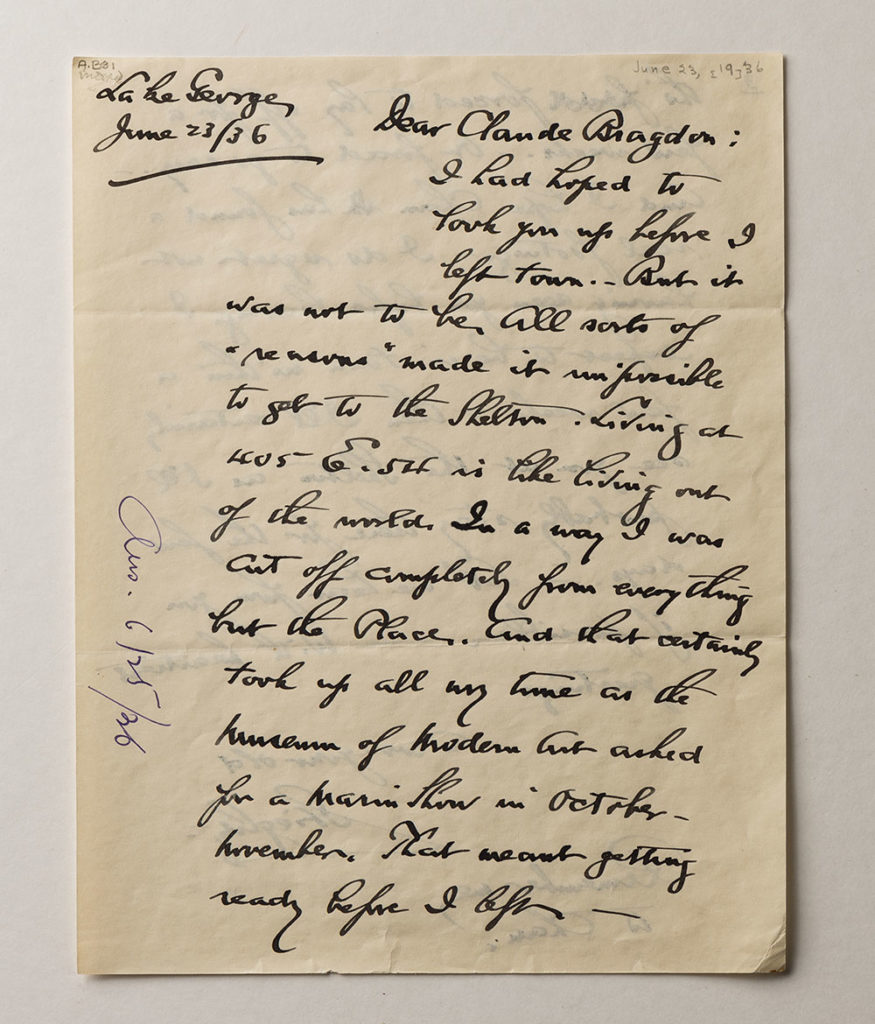 A.B81
June 23, [19]36
Lake George,
June 23/36
Dear Claude Bragdon:
I had hoped to
look you up before I
left town. - But it
was not to be. All sorts of
"reasons" made it impossible
to get to the Shelton. Living at
405 E. 54 is like living out
of the world. In a way I was
cut off completely from everything
but the Place. And that certainly
took up all my time as the
Museum of Modern Art asked
for a Marin Show in October -
November. That meant getting
ready before I left. —
Ans. 6/25/36